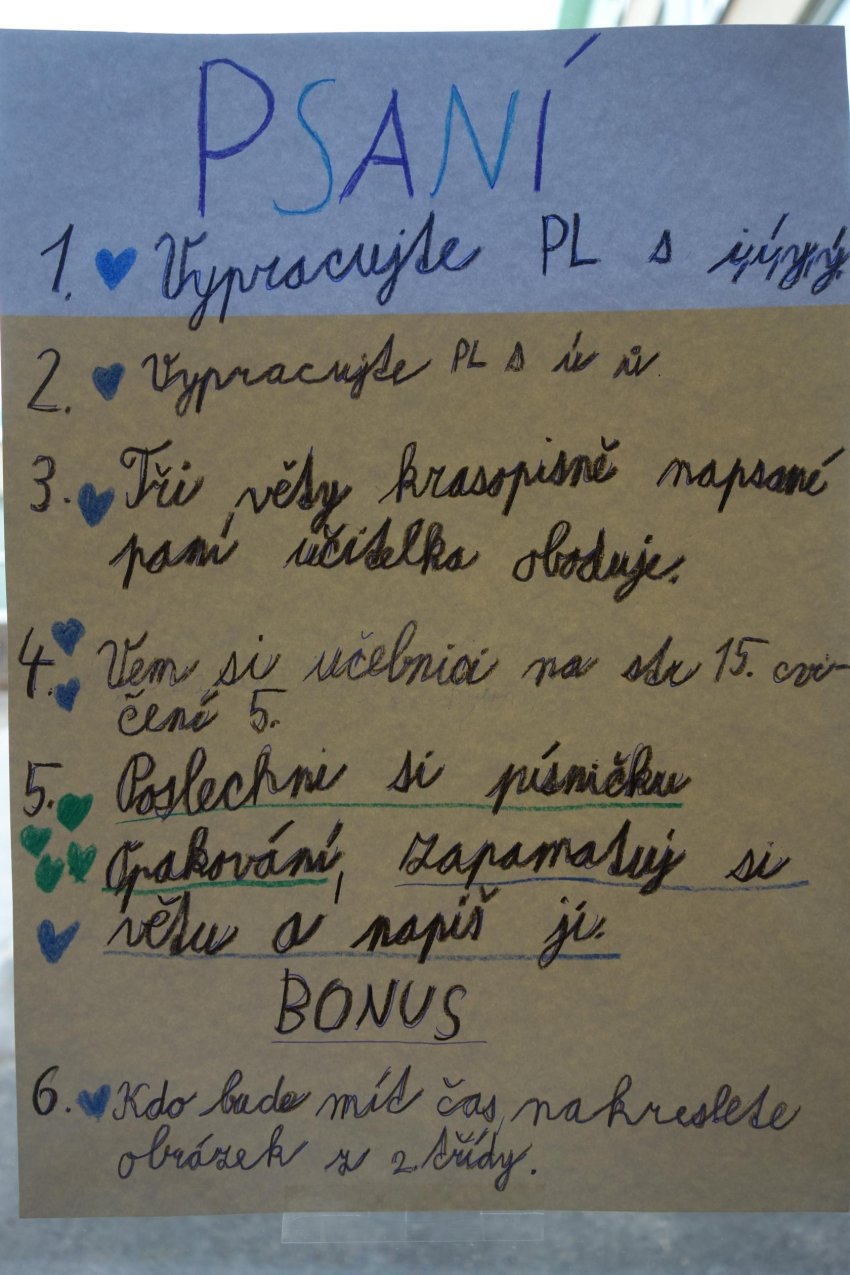 PSANÍ
1. Vypracujte PL s i,í,y,ý.
2. Vypracujte PL s ú ů.
3. Tři věty krasopisně napsané
paní učitelka oboduje.
4. Vem si učebnici na str 15. cvi-
čení 5.
5. Poslechni si písničku
Opakování, zapamatuj si
větu a napiš ji.
BONUS
6. Kdo bude mít čas, nakreslete
obrázek z 2. třídy.